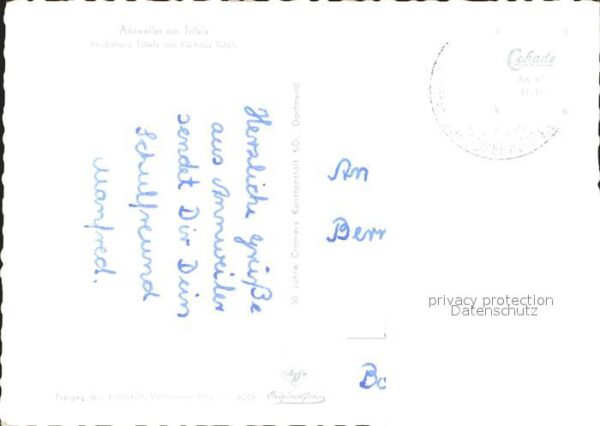 Annweiler am Trifels
Reichsburg Trifels mit Kurhaus Trifels
Herzliche Grüße
aus Annweiler
sendet Dir Dein
Schulfreund
Manfred.
50 Jahre Cramers Kunstanstalt KG., Dortmund
Cekade
An
An
Bern
Ba
privacy protection
Datenschutz
Agfa
Originalfoto